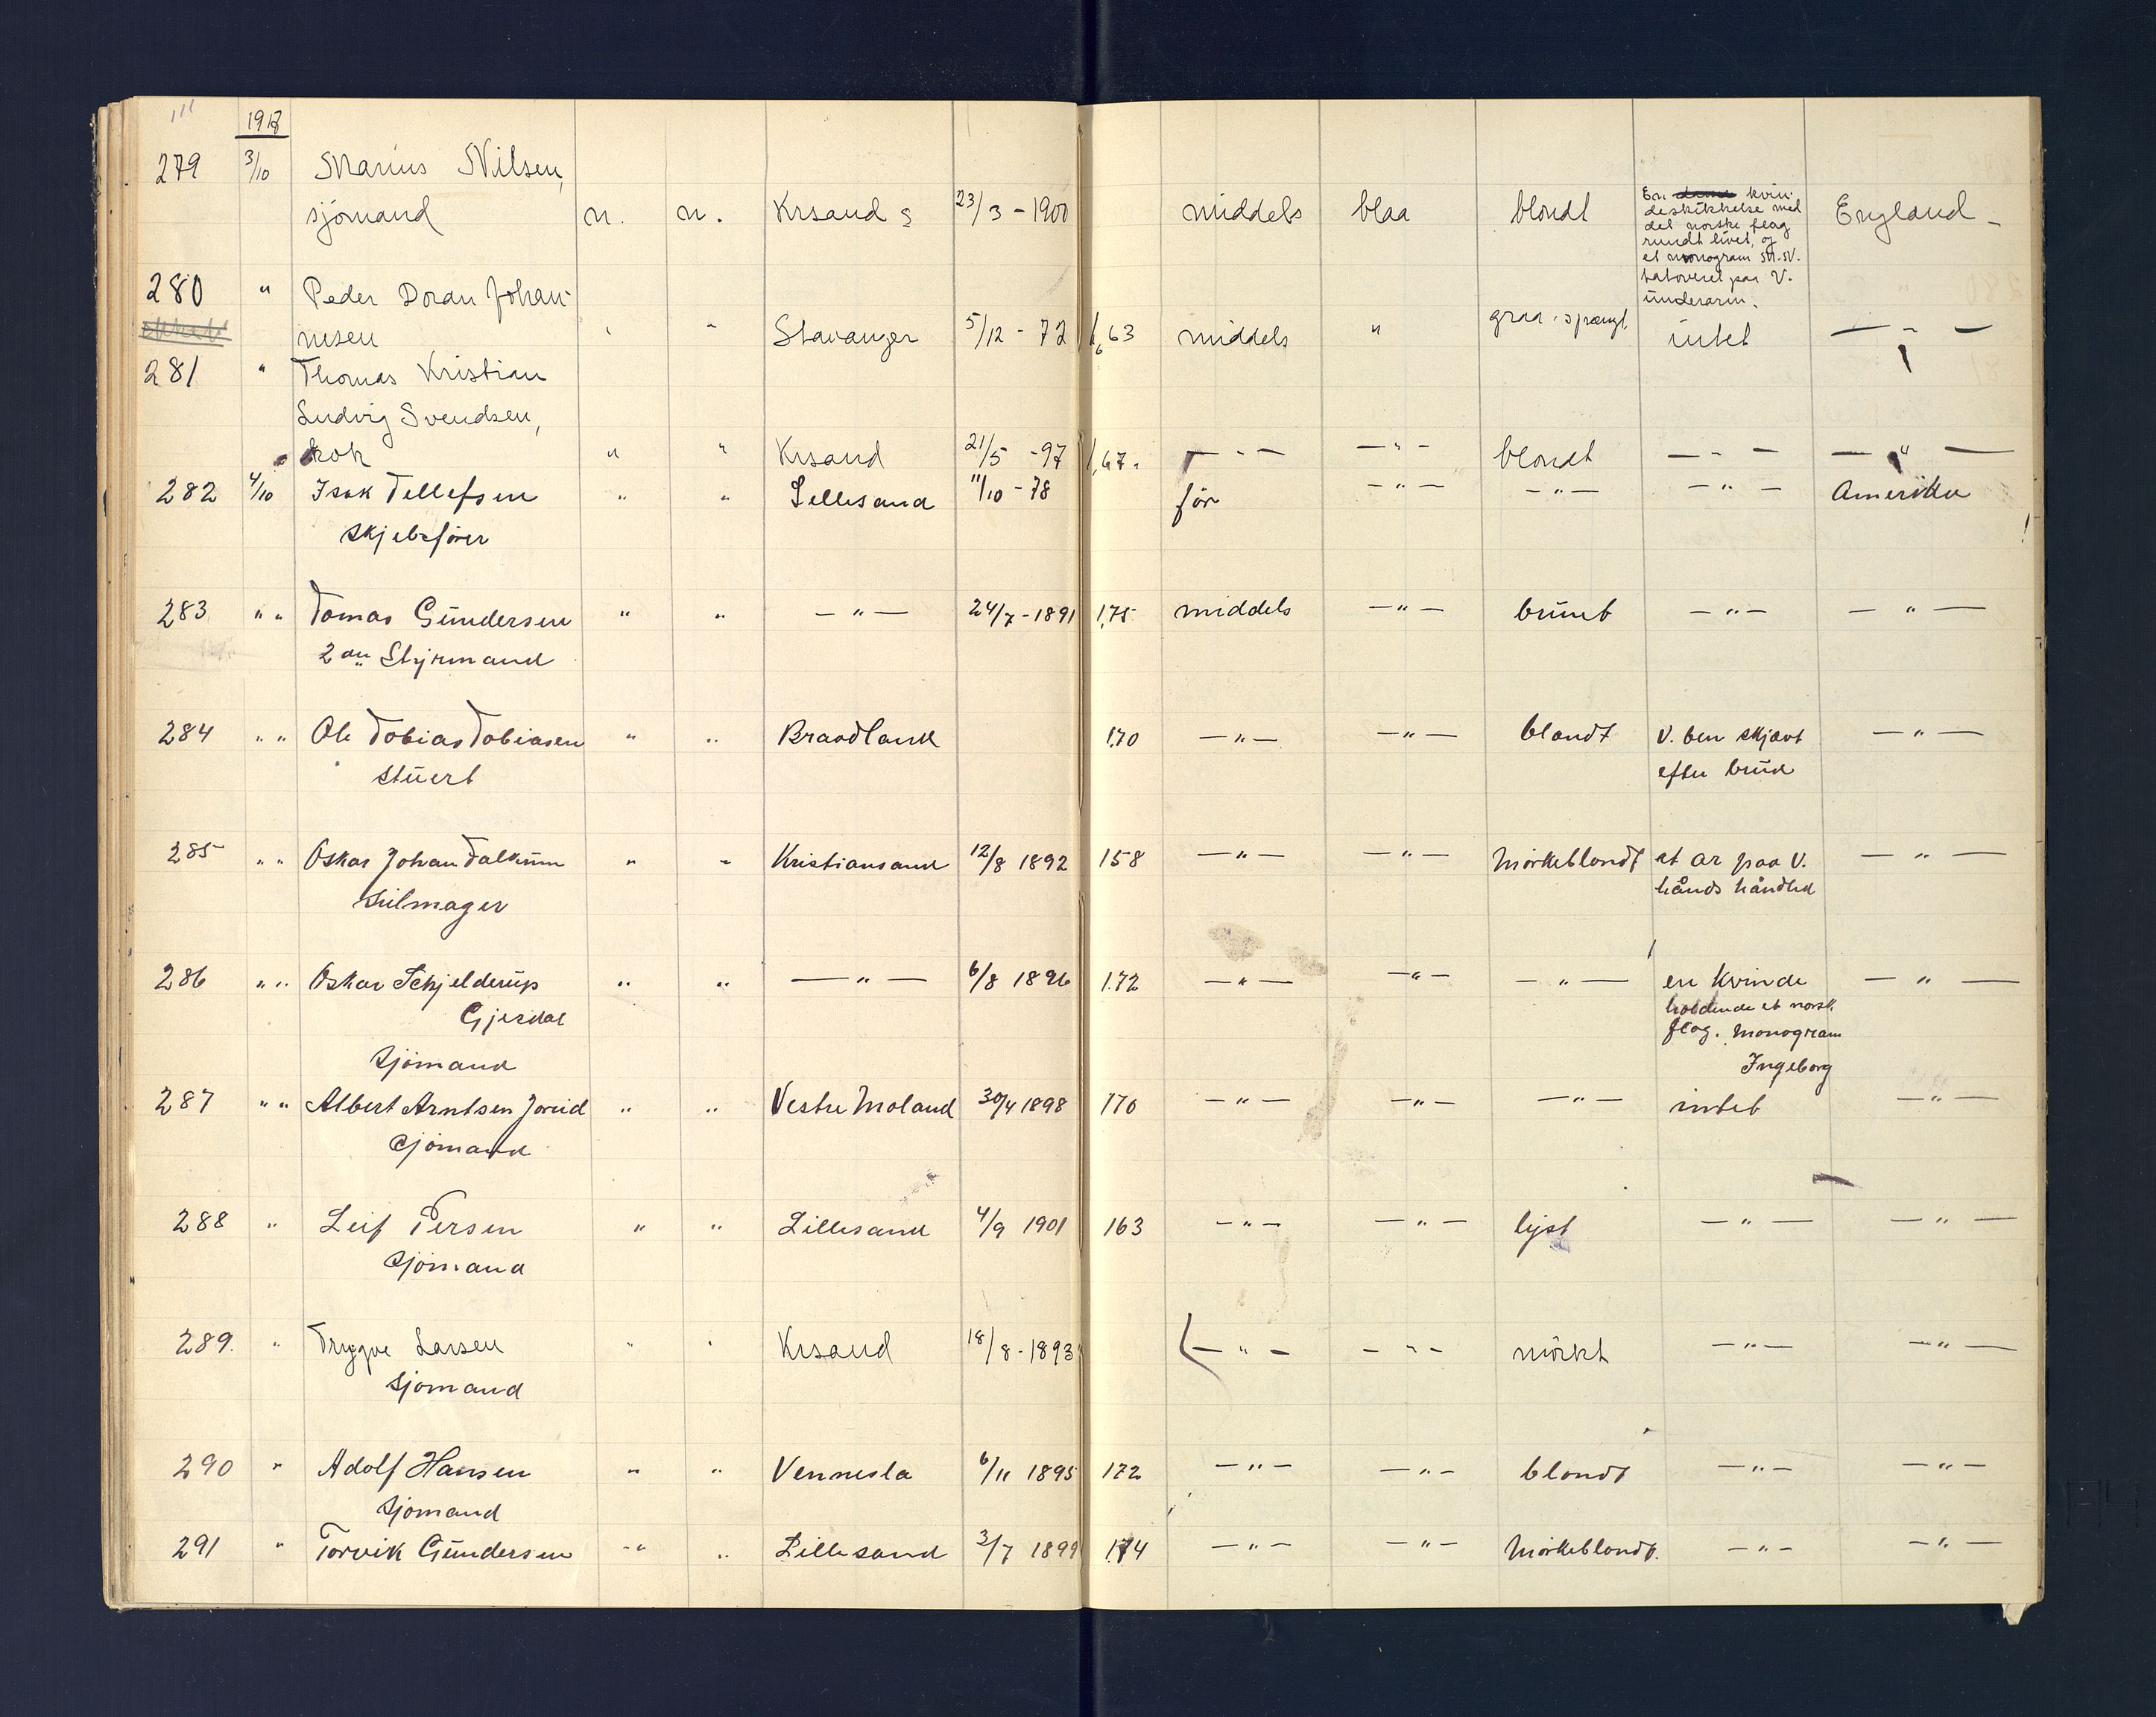 1918
279 3/10 Marius Nilsen,
sjømand n. n. Krsand S 23/3 - 1900 middels blaa blondt En kvin- England -
deskikkelse med
det norske flag
rundt livet, og
et monogram M.N.
tatoveret paa V.
underarm.
280 " Peder Doran Johan-
nisen " " Stavanger 5/12 - 72 1,63 middels " graa-sprængt intet — " —
281 " Thomas Kristian
Ludvig Svendsen,
kok " " Krsand 21/5 - 97 1,67. — " — — " — blondt — " — — " —
282 4/10 Isak Tellefsen " " Lillesand 11/10 - 78 før — " — — " — — " — Amerika
Skjebsfører
283 " " Tomas Gundersen " " — " — 24/7 - 1891 1,75 middels — " — brunt — " — — " —
2den Styrmand
284 " " Ole Tobias Tobiasen " " Braadland 1,70 — " — — " — blondt V. ben skjævt — " —
stuert efter brud
285 " " Oskar Johan Falkum " " Kristiansand 12/8 1892 158 — " — — " — Mørkeblondt et ar paa V. — " —
Seilmager hånds håndled
286 " " Oskar Schjelderup " " — " — 6/8 1896 1.72 — " — — " — — " — en Kvinde — " —
Gjesdal holdende et norsk
flag. Monogram
Sjømand Ingeborg
287 " " Albert Arntsen Joreid " " Vestre Moland 30/4 1898 170 — " — — " — — " — intet — " —
Sjømand
288 " Leif Persen " " Lillesand 4/9 1901 163 — " — — " — lyst — " — — " —
Sjømand
289. " Trygve Larsen " " Krsand 18/8 - 1893 — " — — " — mørkt — " — — " —
Sjømand
290 " Adolf Hansen " " Vennesla 6/11 1895 172 — " — — " — blondt — " — — " —
Sjømand
291 " Torvik Gundersen " " Lillesand 3/7 1899 174 — " — — " — Mørkeblondt. — " — — " —